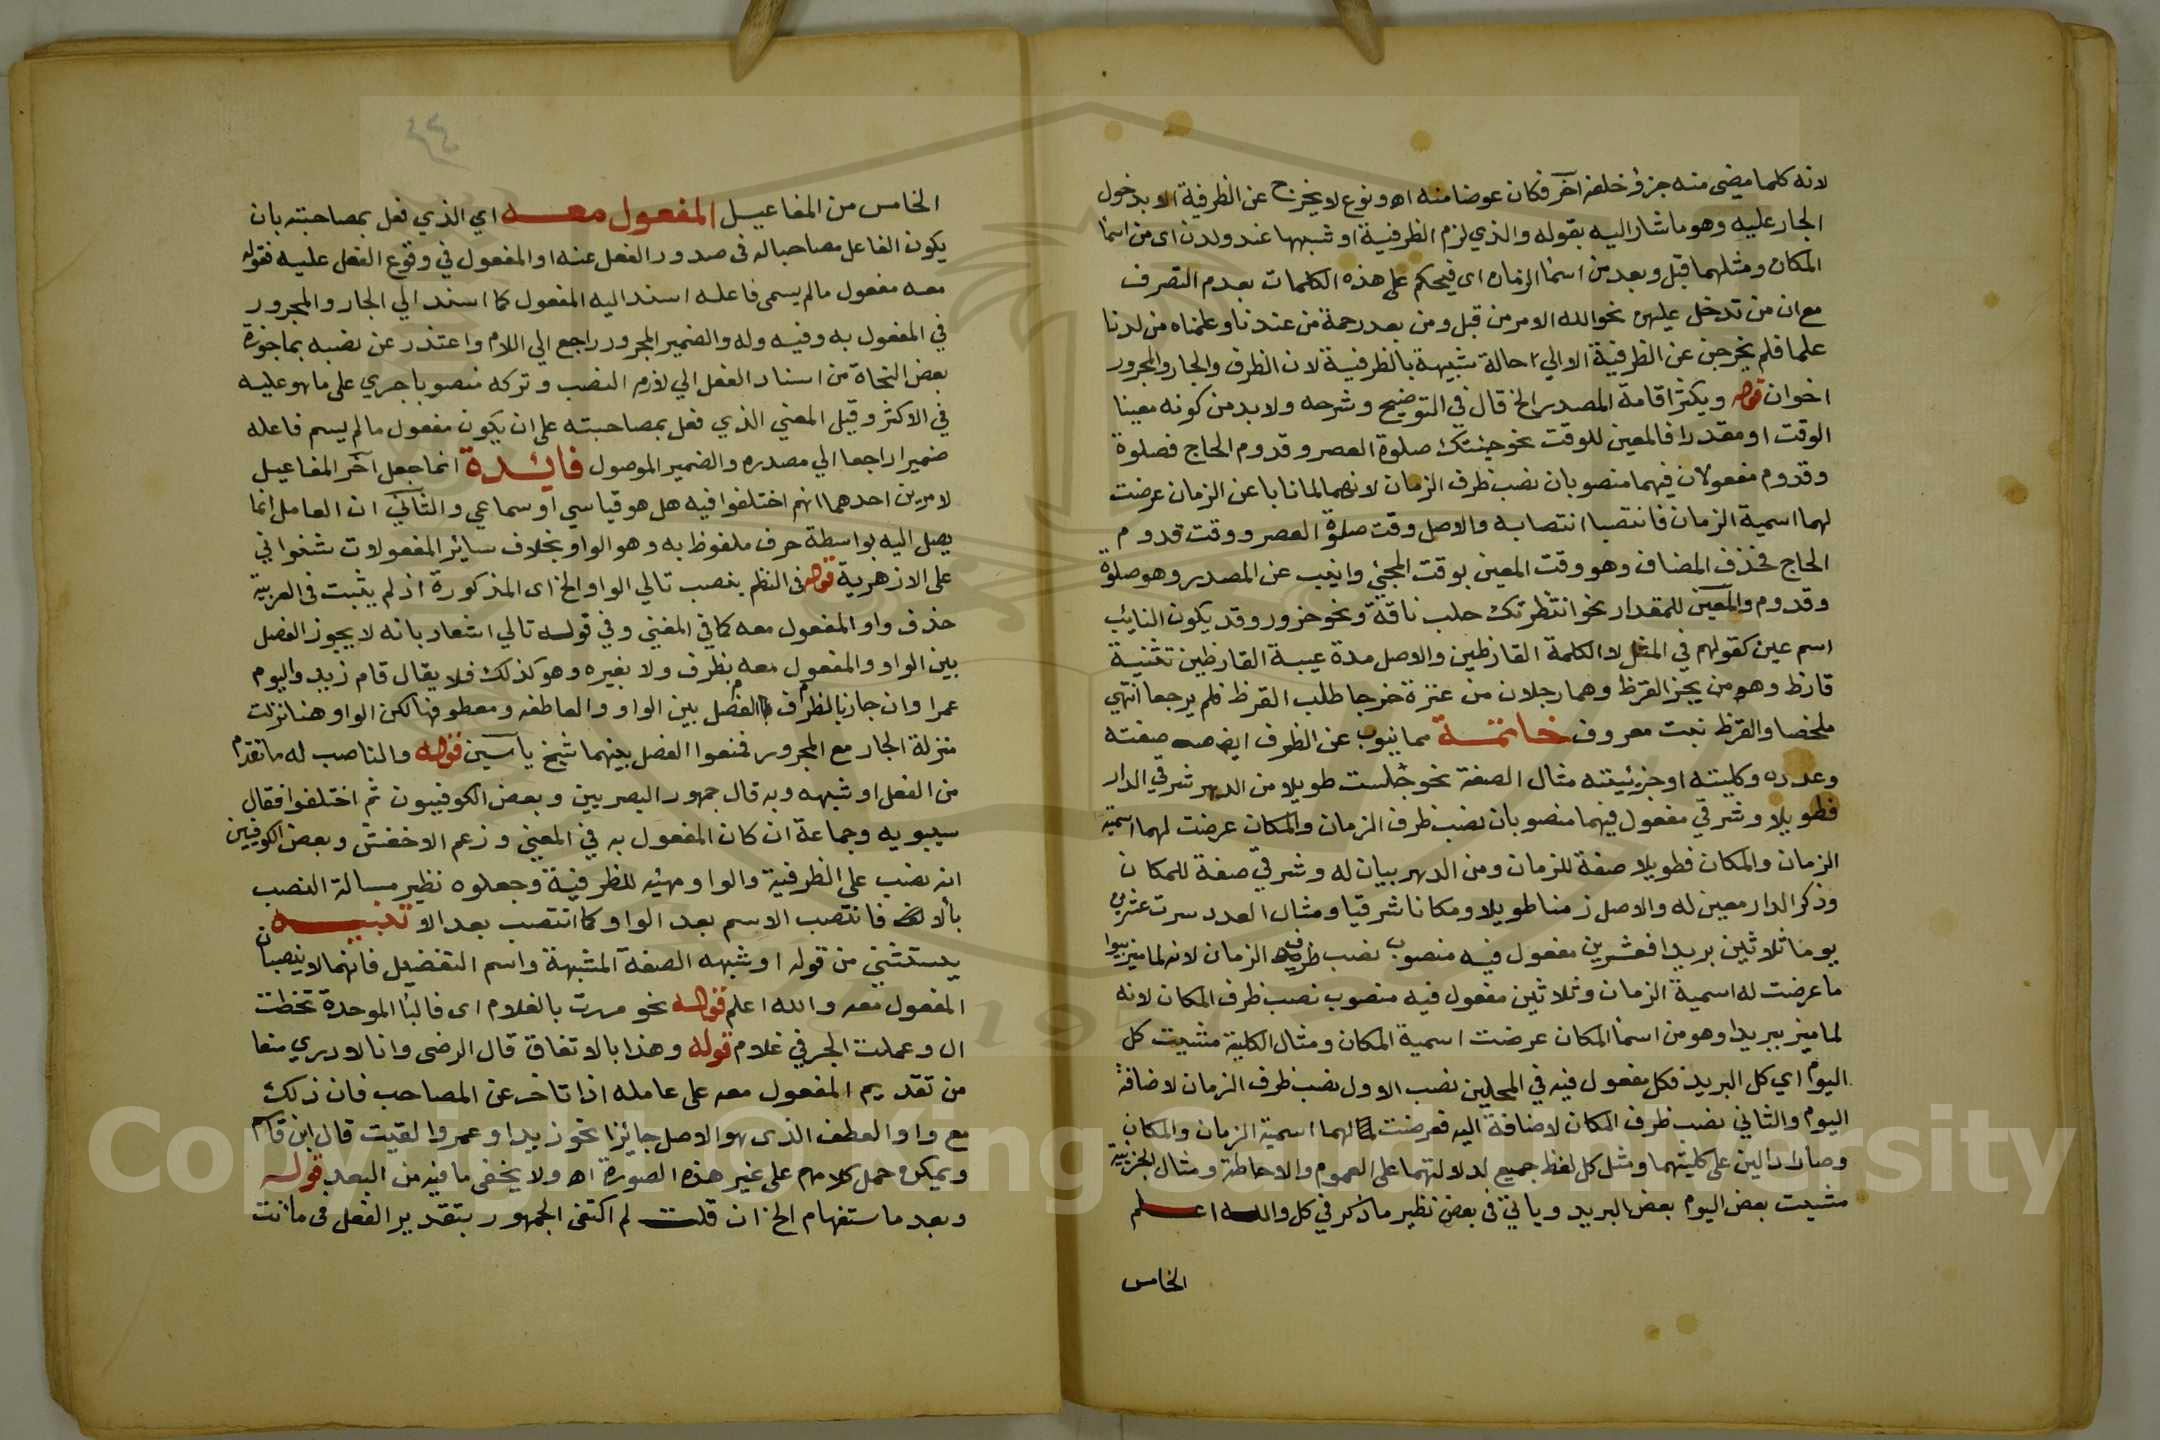 لانه كلما مضى منه جزؤ خلفه آخر فكان عوضا منه اه ونوع لا يخرج عن الظرفية الا بدخول
الجار عليه وهو ما شار اليه بقوله والذي لزم الظرفية او شبهها عند ولدن اى من اسما
المكان ومثلهما قبل وبعد من اسما الزمان اى فيحكم على هذه الكلمات بعدم التصرف
مع ان من تدخل عليهن نحو الله الامر من قبل ومن بعد رحمة من عندنا وعلمناه من لدنا
علما فلم يخرجن عن الظرفية الا الي حالة شبيهة بالظرفية لان الظرف والجار والمجرور
اخوان قوله ويكثر اقامة المصدر الخ قال في التوضيح وشرحه ولا بد من كونه معينا
الوقت او مقدرا فالمعين للوقت نحو جئتك صلوة العصر وقدوم الحاج فصلوة
وقدوم مفعولان فيهما منصوبان نصب ظرف الزمان لانهما لما نابا عن الزمان عرضت
لهما اسمية الزمان فانتصبا انتصابه والاصل وقت صلوة العصر ووقت قدوم
الحاج فحذف المضاف وهو وقت المعين بوقت المجئ وانيب عن المصدر وهو صلوة
وقدوم والمعين للمقدار نحو انتظرتك حلب ناقة ونحو جزور وقد يكون النايب
اسم عين كقولهم في المثل لا اكلمه القارظين والاصل مدة غيبة القارظين تثنية
قارظ وهو من يجز القرظ وهما رجلان من عنزة خرجا طلب القرظ فلم يرجعا انتهي
ملخصا والقرظ نبت معروف خاتمة مما ينوب عن الظرف ايضا صفته
وعدده وكليته او جزئيته مثال الصفة نحو جلست طويلا من الدهر شرقي الدار
فطويلا وشرقي مفعول فيهما منصوبان نصب ظرف الزمان والمكان عرضت لهما اسمية
الزمان والمكان فطويلا صفة للزمان ومن الدهر بيان له وشرقي صفة للمكان
وذكر الدار معين له والاصل زمنا طويلا ومكانا شرقيا ومثال العدد سرت عشرين
يوما ثلاثين بريدا فعشرين مفعول فيه منصوب نصب ظرف الزمان لانه لما ميز بيوا
ما عرضت له اسمية الزمان وثلاثين مفعول فيه منصوب نصب ظرف المكان لانه
لما ميز ببريدا وهو من اسما المكان عرضت اسمية المكان ومثال الكلية مشيت كل
اليوم اي كل البريد فكل مفعول فيه في المحلين نصب الاول نصب ظرف الزمان لاضافة
اليوم والثاني نصب ظرف المكان لاضافة اليه فعرضت لهما اسمية الزمان والمكان
وصارا دالين على كليتهما ومثل كل لفظ جميع لدلالتهما على العموم والاحاطة ومثال الجزئية
مشيت بعض اليوم بعض البريد وياتي في بعض نظير ما ذكر في كل والله اعلم
الخامس
٤٤
الخامس من المفاعيل المفعول معه اي الذي فعل بمصاحبته بان
يكون الفاعل مصاحبا له في صدور الفعل عنه او المفعول في وقوع الفعل عليه فقوله
معه مفعول ما لم يسمى فاعله اسند اليه المفعول كما اسند الي الجار والمجرور
في المفعول به وفيه وله والضمير المجرور راجع الي اللام واعتذر عن نصبه بما جوزه
بعض النحاة من اسناد الفعل الي لازم النصب وتركه منصوبا جري على ما هو عليه
في الاكثر وقيل المعني الذي فعل بمصاحبته على ان يكون مفعول ما لم يسم فاعله
ضميرا راجعا الي مصدره والضمير الموصول فائدة انما جعل آخر المفاعيل
لامرين احدهما انهم اختلفوا فيه هل هو قياسي او سماعي والثاني ان العامل انما
يصل اليه بواسطة حرف ملفوظ به وهو الواو بخلاف ساير المفعولات شنواني
على الازهرية قوله في النظم ينصب تالي الواو الخ اى المذكورة اذ لم يثبت في العربية
حذف واو المفعول معه كما في المغني وفي قوله تالي اشعار بانه لا يجوز الفصل
بين الواو والمفعول معه بظرف ولا بغيره وهو كذلك فلا يقال قام زيد واليوم
عمرا وان جاز بالظرف الفصل بين الواو والعاطفه ومعطوفها لكن الواو هنا نزلت
منزلة الجار مع المجرور فمنعوا الفصل بينهما شيخ ياسين قوله والناصب له ما تقدم
من الفعل او شبهه وبه قال جمهور البصريين وبعض الكوفييون ثم اختلفوا فقال
سيبويه وجماعة ان كان المفعول به في المعني وزعم الاخفش وبعض الكوفيين
انه نصب على الظرفية والواو مهيئه للظرفية وجعلوه نظير مسالة النصب
بالا فانتصب الاسم بعد الواو كما انتصب بعد الا تنبيه
يستثني من قوله او شبهه الصفة المشبهة واسم التفضيل فانهما لا ينصبان
المفعول معه والله اعلم قوله نحو مررت بالغلام اى فالبا الموحدة تخطت
ال وعملت الجر في غلام قوله وهذا بالاتفاق قال الرضى وانا لا دري منعا
من تقديم المفعول معه على عامله اذا تاخر عن المصاحب فان ذلك
مع واو العطف الذى هو الاصل جايزا نحو زيدا وعمروا لقيت قال ابن قاسم
ويمكن حمل كلامهم على غير هذه الصورة اه ولا يخفى ما فيه من البعد قوله
وبعد ما ستفهام الخ ان قلت لم اكتفى الجمهور بتقدير الفعل في ما انت
Copyright © King Saud University